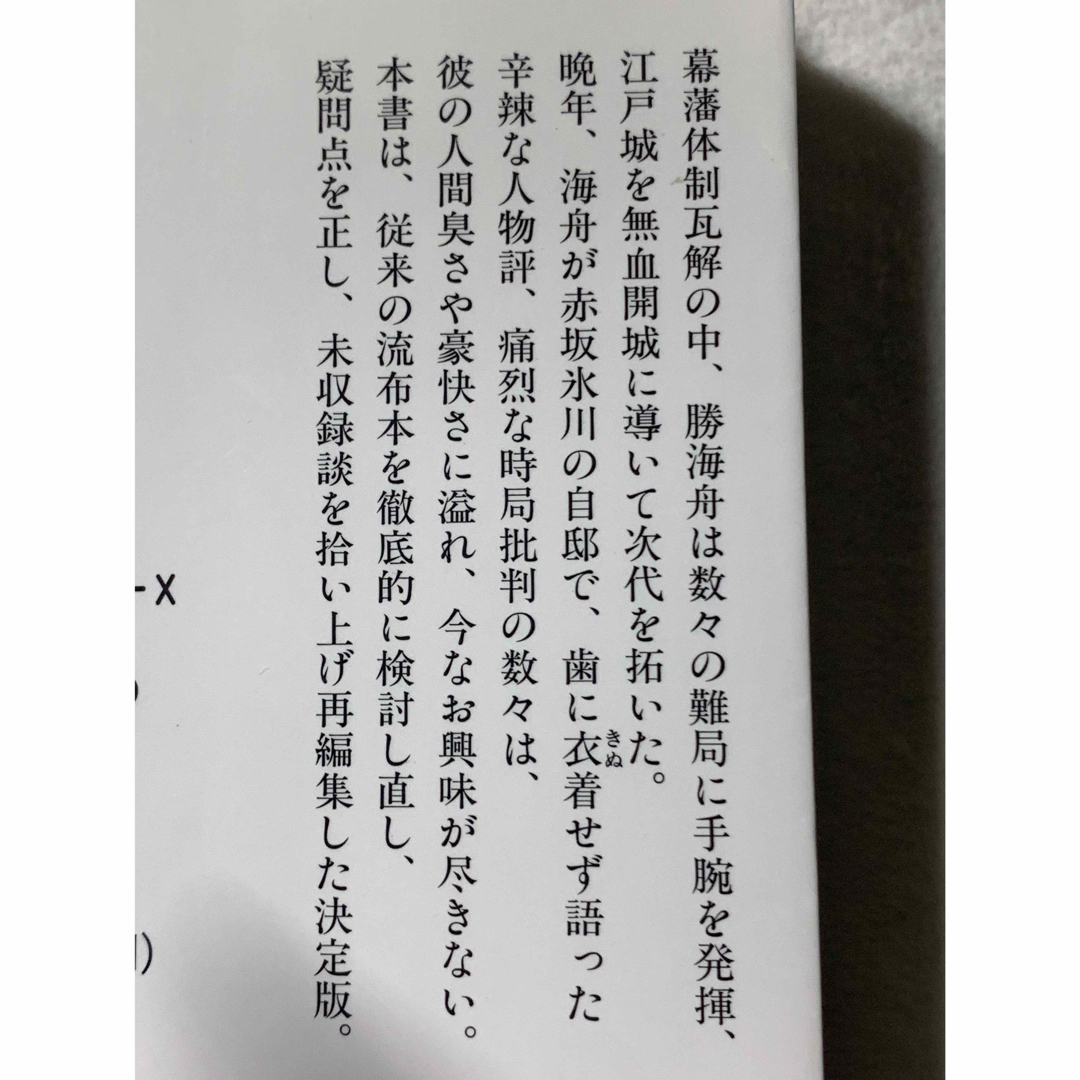 幕藩体制瓦解の中、勝海舟は数々の難局に手腕を発揮、
江戸城を無血開城に導いて次代を拓いた。
晩年、海舟が赤坂氷川の自邸で、歯に衣着せず語った
きぬ
辛辣な人物評、痛烈な時局批判の数々は、
彼の人間臭さや豪快さに溢れ、今なお興味が尽きない。
本書は、従来の流布本を徹底的に検討し直し、
疑問点を正し、未収録談を拾い上げ再編集した決定版。
-X
)